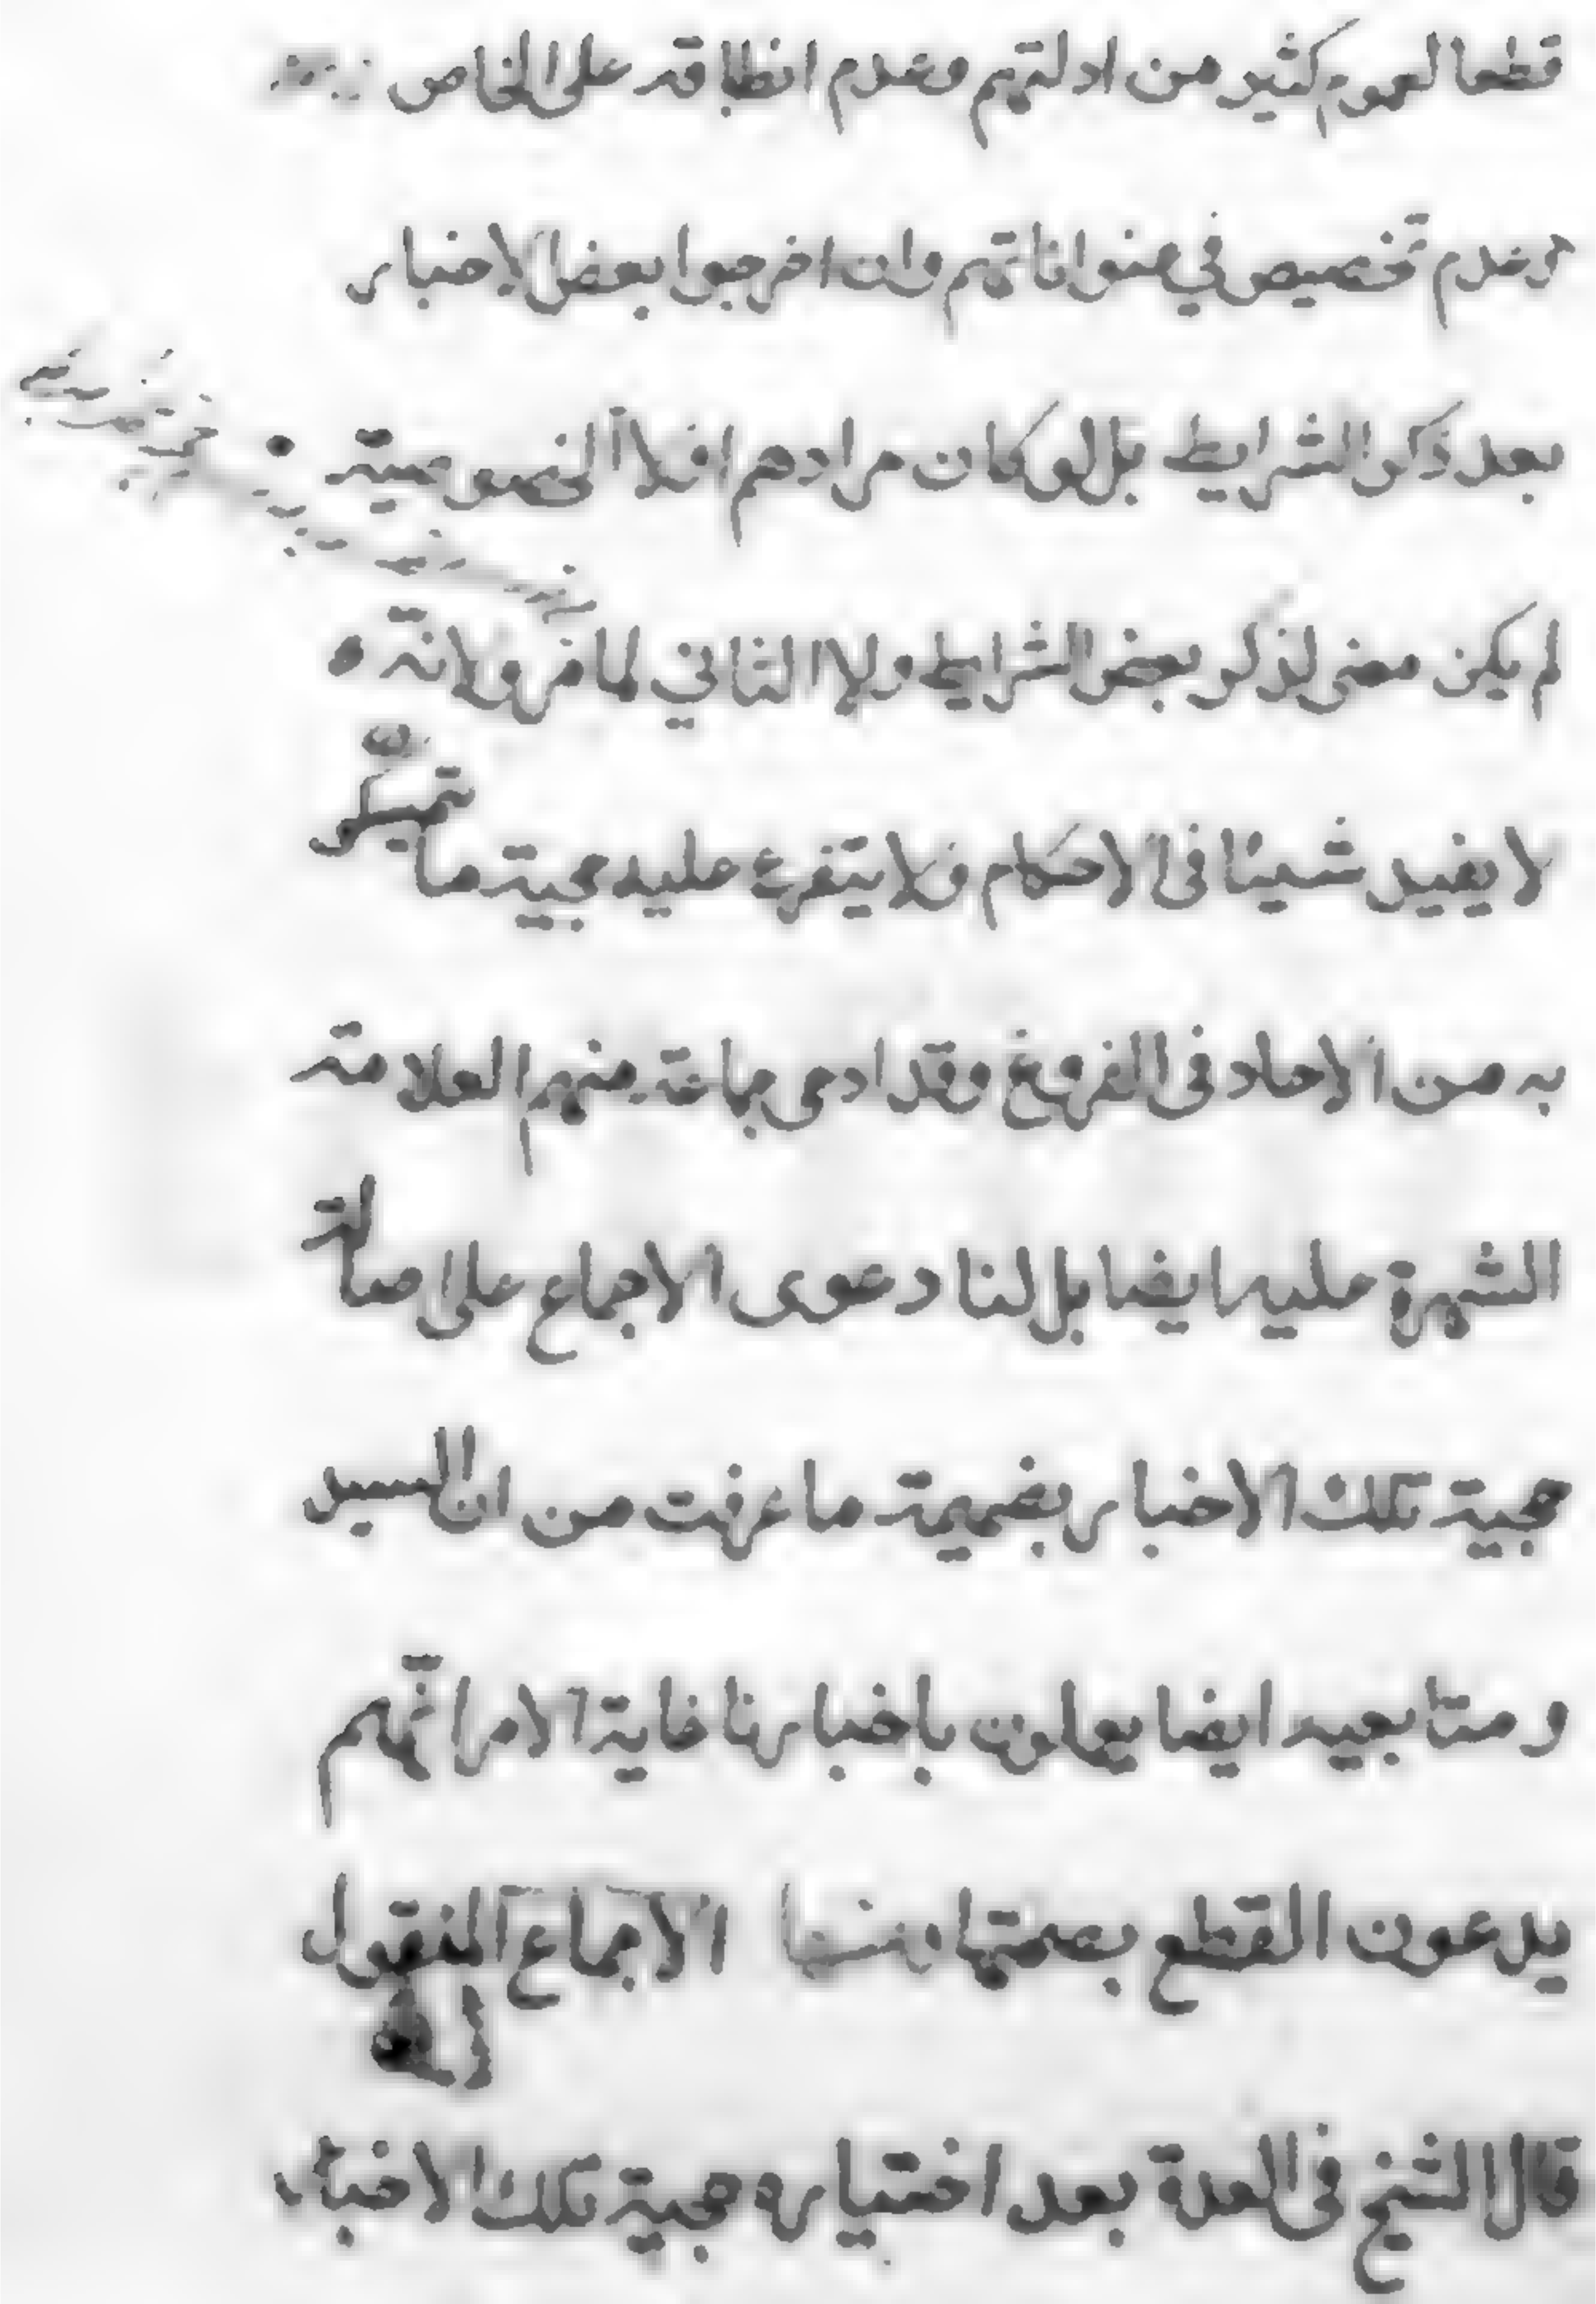 قطعا لعموم كثير من ادلتهم وعدم انطباقه على الخاص
وعدم تخصيص في عنواناتهم وان اخرجوا بعض الاخبار
بعد ذكر الشرايط بل لو كان مرادهم افلا الخصوصية
لم يكن معنى لذكر بعض الشرايط ولا الثاني لما مر ولانه
لا يفيد شيئا فى الاحكام ولا يتفرع عليه حجية ما تمسكوا
به من الاحاد فى الفروع وقد ادعى جماعة منهم العلامة
الشهرة عليه ايضا بل لنا دعوى الاجماع على اصالة
حجية تلك الاخبار بضميمة ما عرفت من ان السيد
ومتابعيه ايضا يعملون باخبارنا غاية الامر انهم
يدعون القطع بصحتها ومنها الاجماع المنقول
قال الشيخ فى العدة بعد اختياره حجية تلك الاخبار